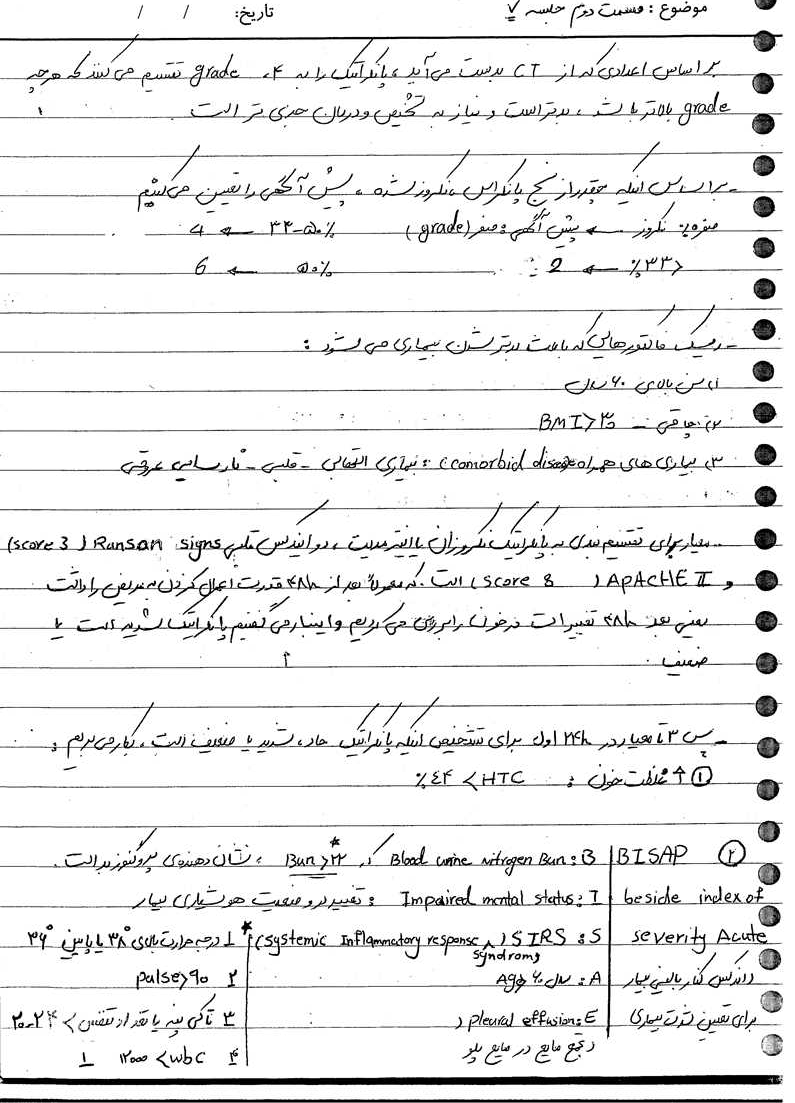 موضوع: قسمت دوم جلسه ۷ تاریخ: / /
بر اساس اعدادی که از CT بدست می‌آید، پانکراتیک را به ۴ grade تقسیم می‌کنند که هرچه
grade بالاتر باشد، بدتر است و نیاز به تشخیص و درمان جدی‌تر است
- بر اساس اینکه چقدر از نسج پانکراس، نکروز شده، پیش آگهی را تعیین می‌کنیم
صفر٪ نکروز ← پیش آگهی: صفر (grade) ۳۳-۵۰٪ ← 4
<۳۳٪ ← 2 ۵۰٪ ← 6
- ریسک فاکتورهایی که باعث بدتر شدن بیماری می‌شود:
۱) سن بالای ۶۰ سال
۲) چاقی - BMI>۳۰
۳) بیماری های همراه (comorbid disease): بیماری التهابی - قلبی - نارسایی عروقی
- معیار برای تقسیم بندی به پانکراتیک نکروزان یا اینترمدیت، دو ایندکس قبلی Ranson signs (score 3)
و APACHE II (score 8) است. که معمولاً بعد از ۴۸h قدرت اعمال کردن به مریض را داشت
یعنی بعد ۴۸h تغییرات در خون را بررسی می‌کردیم و اینبار می‌گفتیم پانکراتیک شدید است یا
ضعیف.
- پس ۳ تا معیار در ۲۴h اول برای تشخیص اینکه پانکراتیک حاد، شدید یا ضعیف است، بکار می‌بریم:
① ↑ غلظت خون: HTC > ۴۴٪
② BISAP B: Blood urine nitrogen Bun که Bun>۲۲*، نشان دهنده‌ی پروگنوز بد است.
beside index of I: Impaired mental status: تغییر در وضعیت هوشیاری بیمار
severity Acute S: SIRS (systemic Inflammatory response syndroms) * ۱ درجه حرارت بالای ۳۸° یا پایین ۳۶°
(اندکس کنار بالینی بیمار A: Age>۶۰ سال ۲ pulse>۹۰
برای تعیین شدت بیماری E: pleural effusion ( ۳ تاکی پنه یا تعداد تنفس > ۲۰-۲۴
تجمع مایع در مایع پلور ۴ wbc > ۱۲۰۰۰ ۱